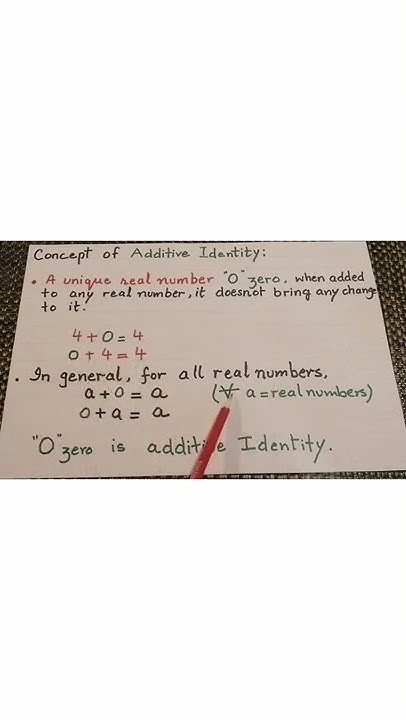 Concept of Additive Identity:
• A unique real number "0" zero, when added
to any real number, it doesnot bring any change
to it.
4 + 0 = 4
0 + 4 = 4
• In general, for all real numbers,
a + 0 = a (∀ a = real numbers)
0 + a = a
"0" zero is additive Identity.